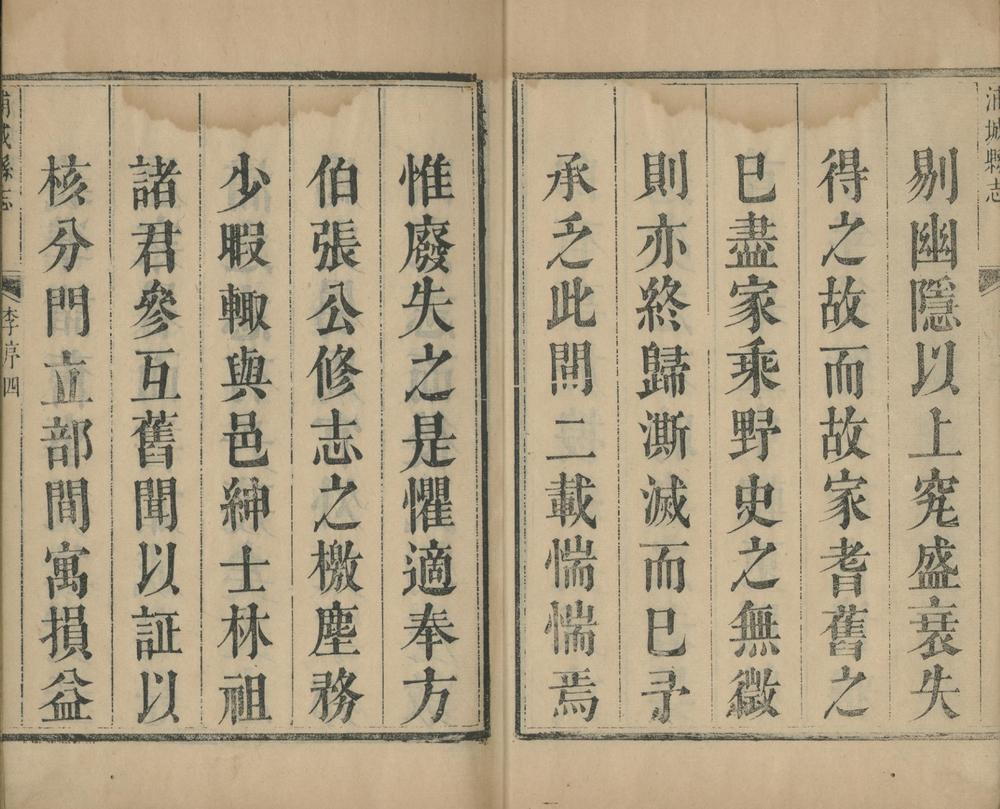 浦城縣志
剔幽隱以上究盛衰失
得之故而故家耆舊之
巳盡家乘野史之無徵
則亦終歸澌滅而巳予
承乏此閒二載惴惴焉
惟廢失之是懼適奉方
伯張公修志之檄塵務
少暇輙與邑紳士林祖
諸君參互舊聞以証以
核分門立部間寓損益
浦城縣志
李序四